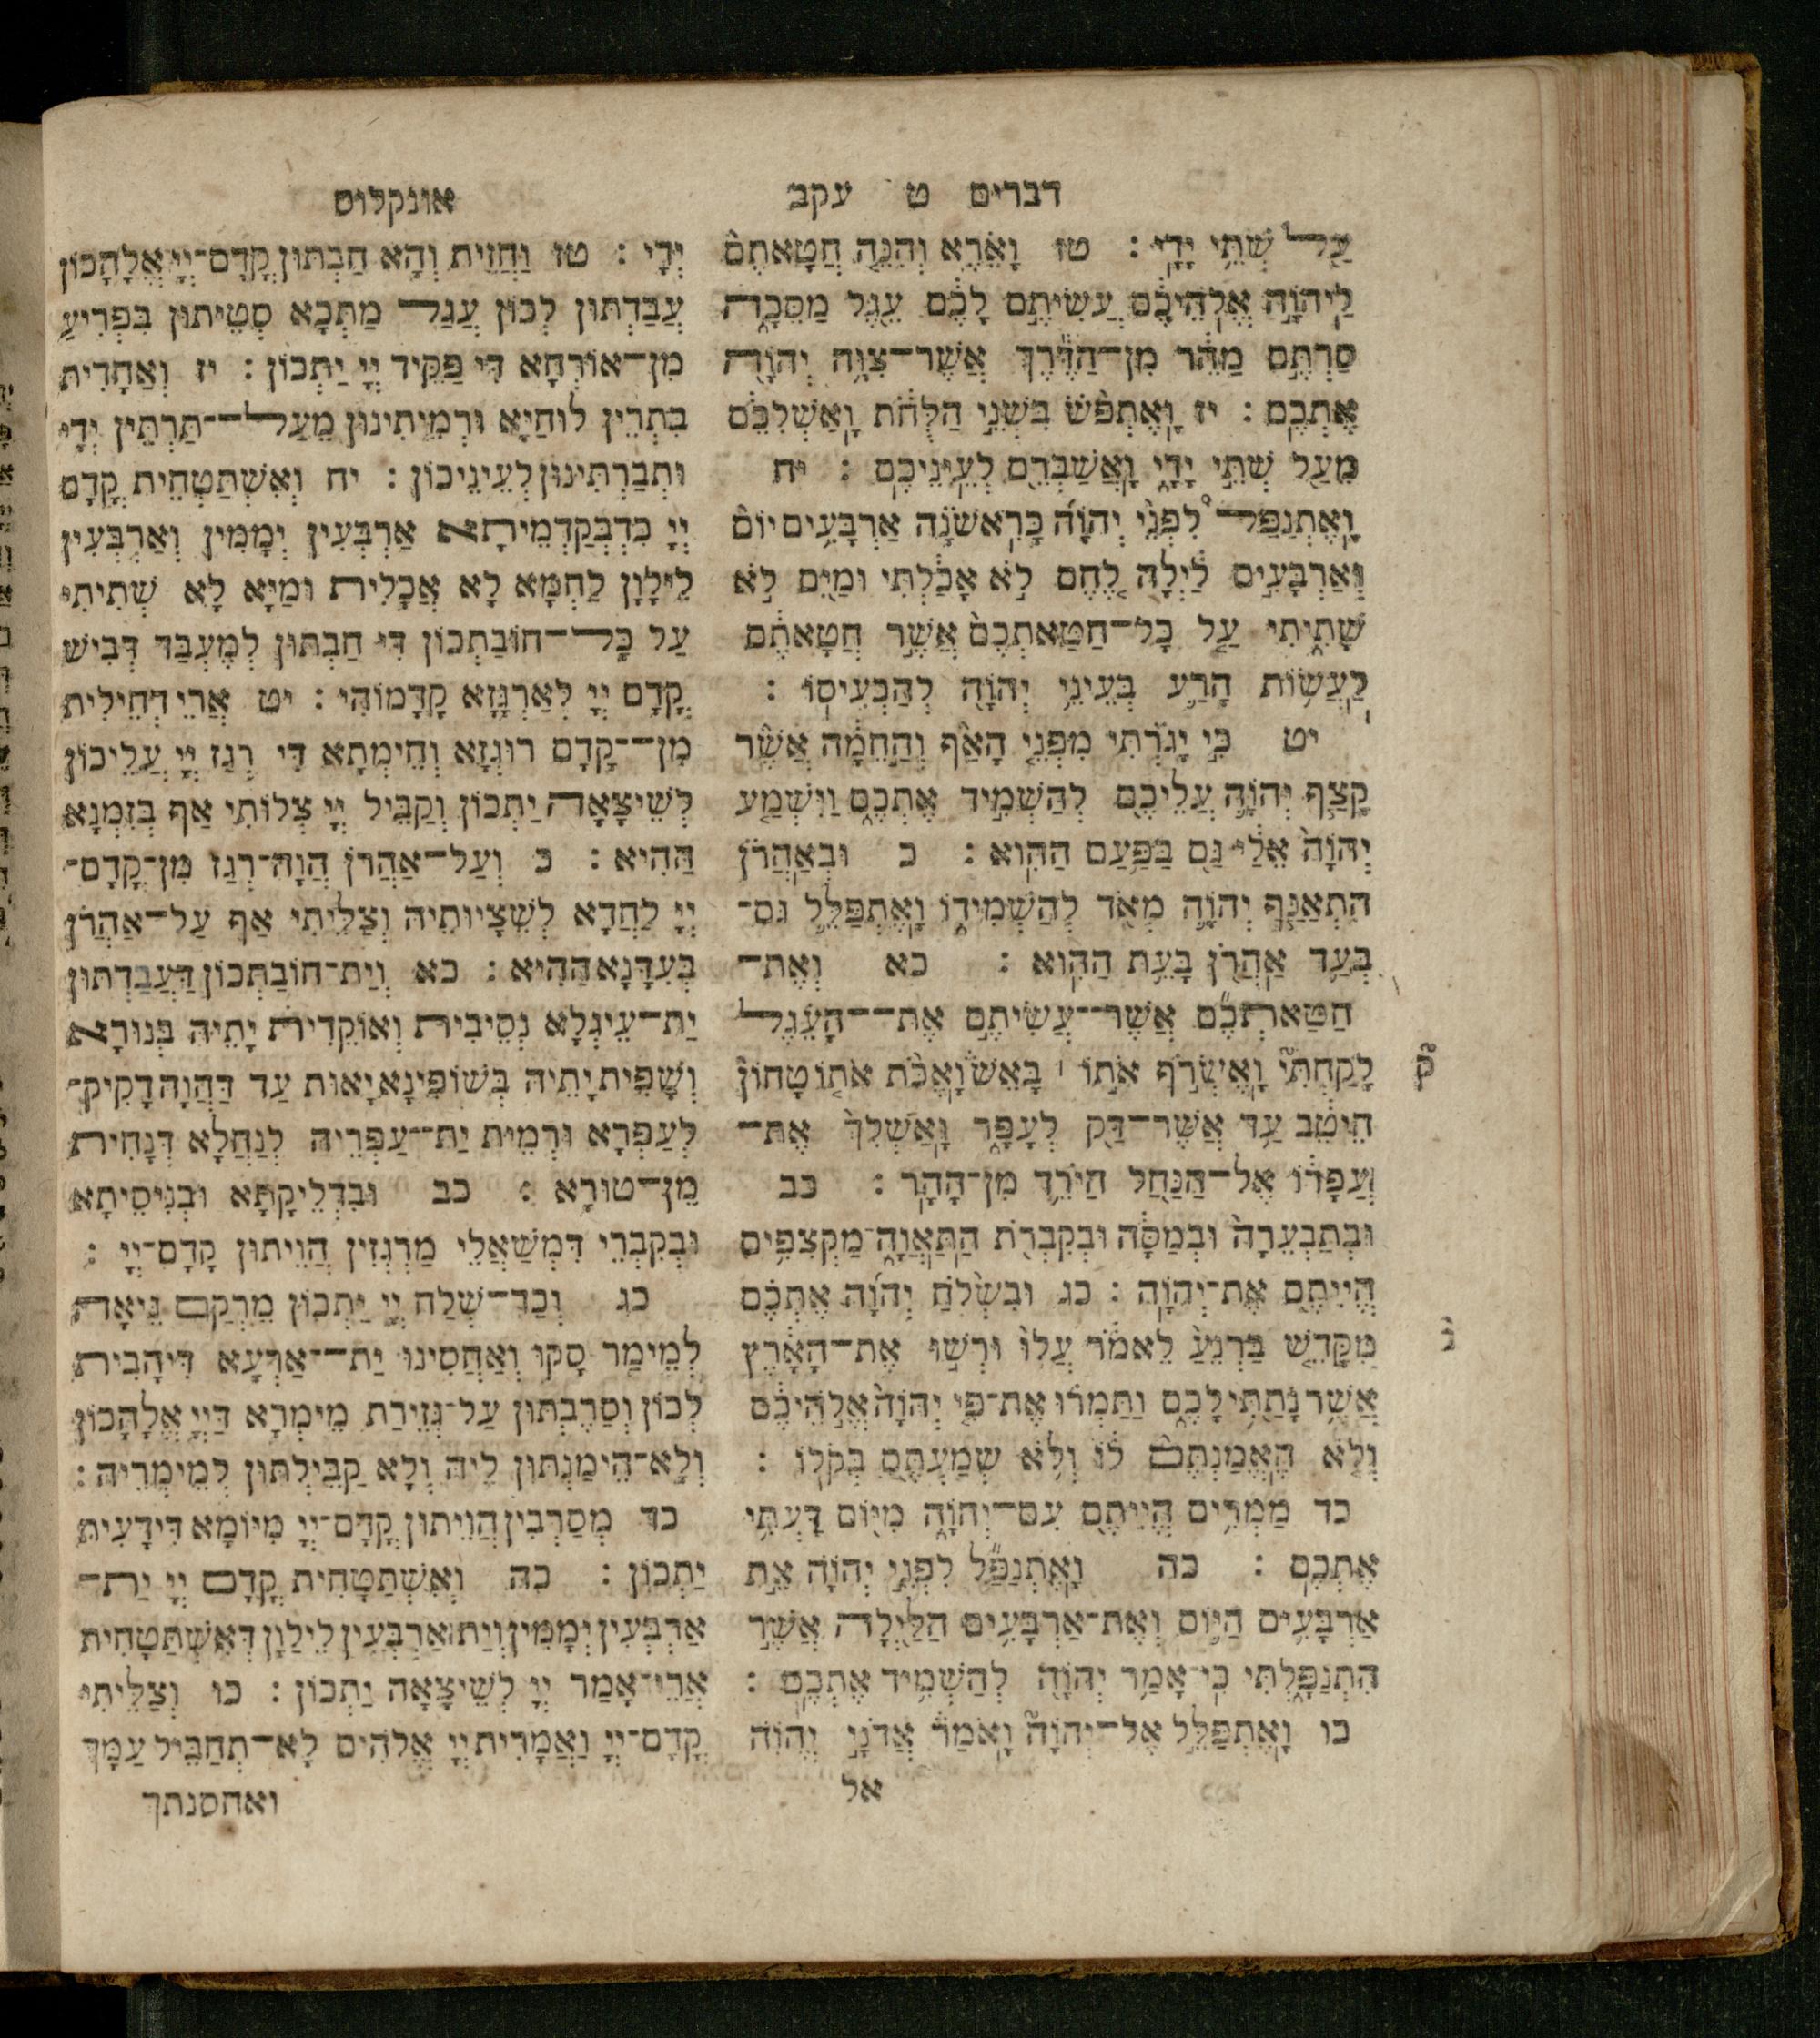 דברים ט עקב
עַל שְׁתֵּי יָדָי : טז וָאֵרֶא וְהִנֵּה חֲטָאתֶם
לַיהוָה אֱלֹהֵיכֶם עֲשִׂיתֶם לָכֶם עֵגֶל מַסֵּכָה
סַרְתֶּם מַהֵר מִן־הַדֶּרֶךְ אֲשֶׁר־צִוָּה יְהוָה
אֶתְכֶם : יז וָאֶתְפֹּשׂ בִּשְׁנֵי הַלֻּחֹת וָאַשְׁלִכֵם
מֵעַל שְׁתֵּי יָדָי וָאֲשַׁבְּרֵם לְעֵינֵיכֶם : יח
וָאֶתְנַפַּל לִפְנֵי יְהוָה כָּרִאשֹׁנָה אַרְבָּעִים יוֹם
וְאַרְבָּעִים לַיְלָה לֶחֶם לֹא אָכַלְתִּי וּמַיִם לֹא
שָׁתִיתִי עַל כָּל־חַטַּאתְכֶם אֲשֶׁר חֲטָאתֶם
לַעֲשׂוֹת הָרַע בְּעֵינֵי יְהוָה לְהַכְעִיסוֹ :
יט כִּי יָגֹרְתִּי מִפְּנֵי הָאַף וְהַחֵמָה אֲשֶׁר
קָצַף יְהוָה עֲלֵיכֶם לְהַשְׁמִיד אֶתְכֶם וַיִּשְׁמַע
יְהוָה אֵלַי גַּם בַּפַּעַם הַהִוא : כ וּבְאַהֲרֹן
הִתְאַנַּף יְהוָה מְאֹד לְהַשְׁמִידוֹ וָאֶתְפַּלֵּל גַּם־
בְּעַד אַהֲרֹן בָּעֵת הַהִוא : כא וְאֶת־
חַטַּאתְכֶם אֲשֶׁר־עֲשִׂיתֶם אֶת־הָעֵגֶל
לָקַחְתִּי וָאֶשְׂרֹף אֹתוֹ ׀ בָּאֵשׁ וָאֶכֹּת אֹתוֹ טָחוֹן
הֵיטֵב עַד אֲשֶׁר־דַּק לְעָפָר וָאַשְׁלִךְ אֶת־
עֲפָרוֹ אֶל־הַנַּחַל הַיֹּרֵד מִן־הָהָר : כב
וּבְתַבְעֵרָה וּבְמַסָּה וּבְקִבְרֹת הַתַּאֲוָה מַקְצִפִים
הֱיִיתֶם אֶת־יְהוָה : כג וּבִשְׁלֹחַ יְהוָה אֶתְכֶם
מִקָּדֵשׁ בַּרְנֵעַ לֵאמֹר עֲלוּ וּרְשׁוּ אֶת־הָאָרֶץ
אֲשֶׁר נָתַתִּי לָכֶם וַתַּמְרוּ אֶת־פִּי יְהוָה אֱלֹהֵיכֶם
וְלֹא הֶאֱמַנְתֶּם לוֹ וְלֹא שְׁמַעְתֶּם בְּקֹלוֹ :
כד מַמְרִים הֱיִיתֶם עִם־יְהוָה מִיּוֹם דַּעְתִּי
אֶתְכֶם : כה וָאֶתְנַפַּל לִפְנֵי יְהוָה אֵת
אַרְבָּעִים הַיּוֹם וְאֶת־אַרְבָּעִים הַלַּיְלָה אֲשֶׁר
הִתְנַפָּלְתִּי כִּי־אָמַר יְהוָה לְהַשְׁמִיד אֶתְכֶם :
כו וָאֶתְפַּלֵּל אֶל־יְהוָה וָאֹמַר אֲדֹנָי יֱהוִה
אל
ק
ג
אונקלוס
יְדָי : טז וַחֲזֵית וְהָא חַבְתּוּן קֳדָם־יְיָ אֱלָהָכוֹן
עֲבַדְתּוּן לְכוֹן עֲגַל מַתְּכָא סְטֵיתוּן בִּפְרִיעַ
מִן־אוֹרְחָא דִּי פַקֵּיד יְיָ יַתְכוֹן : יז וְאַחָדִית
בִּתְרֵין לוּחַיָּא וּרְמֵיתִינוּן מֵעַל־תַּרְתֵּין יְדָי
וּתְבַרְתִּינוּן לְעֵינֵיכוֹן : יח וְאִשְׁתַּטְחֵית קֳדָם
יְיָ כִּדְבְקַדְמֵיתָא אַרְבְּעִין יְמָמִין וְאַרְבְּעִין
לֵילָוָן לַחְמָא לָא אֲכָלִית וּמַיָּא לָא שְׁתִיתִי
עַל כָּל־חוֹבַתְכוֹן דִּי חַבְתּוּן לְמֶעְבַּד דְּבִישׁ
קֳדָם יְיָ לְאַרְגָּזָא קֳדָמוֹהִי : יט אֲרֵי דְחֵילִית
מִן־קֳדָם רוּגְזָא וְחֵימְתָא דִּי רְגֵז יְיָ עֲלֵיכוֹן
לְשֵׁיצָאָה יַתְכוֹן וְקַבֵּיל יְיָ צְלוֹתִי אַף בְּזִמְנָא
הַהִיא : כ וְעַל־אַהֲרֹן הֲוָה־רְגַז מִן־קֳדָם־
יְיָ לַחֲדָא לְשֵׁצָיוּתֵיהּ וְצַלֵּיתִי אַף עַל־אַהֲרֹן
בְּעִדָּנָא הַהִיא : כא וְיַת־חוֹבַתְכוֹן דַּעֲבַדְתּוּן
יַת־עֵיגְלָא נְסֵיבִית וְאוֹקֵדִית יָתֵיהּ בְּנוּרָא
וְשָׁפִית יָתֵיהּ בְּשׁוֹפִינָא יָאוּת עַד דַּהֲוָה דָקִיק־
לְעַפְרָא וּרְמֵית יַת־עַפְרֵיהּ לְנַחֲלָא דְּנָחִית
מִן־טוּרָא : כב וּבִדְלֵיקָתָא וּבְנִיסֵיתָא
וּבְקִבְרֵי דִּמְשַׁאֲלֵי מַרְגְּזִין הֲוֵיתוּן קֳדָם־יְיָ :
כג וְכַד־שְׁלַח יְיָ יַתְכוֹן מֵרְקַם גֵּיאָה
לְמֵימַר סָקוּ וְאַחֲסִינוּ יַת־אַרְעָא דִּיהָבִית
לְכוֹן וְסָרֵבְתּוּן עַל־גְּזֵירַת מֵימְרָא דַּיְיָ אֱלָהָכוֹן
וְלָא־הֵימַנְתּוּן לֵיהּ וְלָא קַבֵּילְתּוּן לְמֵימְרֵיהּ :
כד מְסָרְבִין הֲוֵיתוּן קֳדָם־יְיָ מִיּוֹמָא דִּידָעִית
יַתְכוֹן : כה וְאִשְׁתַּטָּחִית קֳדָם יְיָ יַת־
אַרְבְּעִין יְמָמִין וְיַת אַרְבְּעִין לֵילָוָן דְּאִשְׁתַּטָּחִית
אֲרֵי־אָמַר יְיָ לְשֵׁיצָאָה יַתְכוֹן : כו וְצַלֵּיתִי
קֳדָם־יְיָ וַאֲמָרִית יְיָ אֱלֹהִים לָא־תְחַבֵּיל עַמָּךְ
ואחסנתך